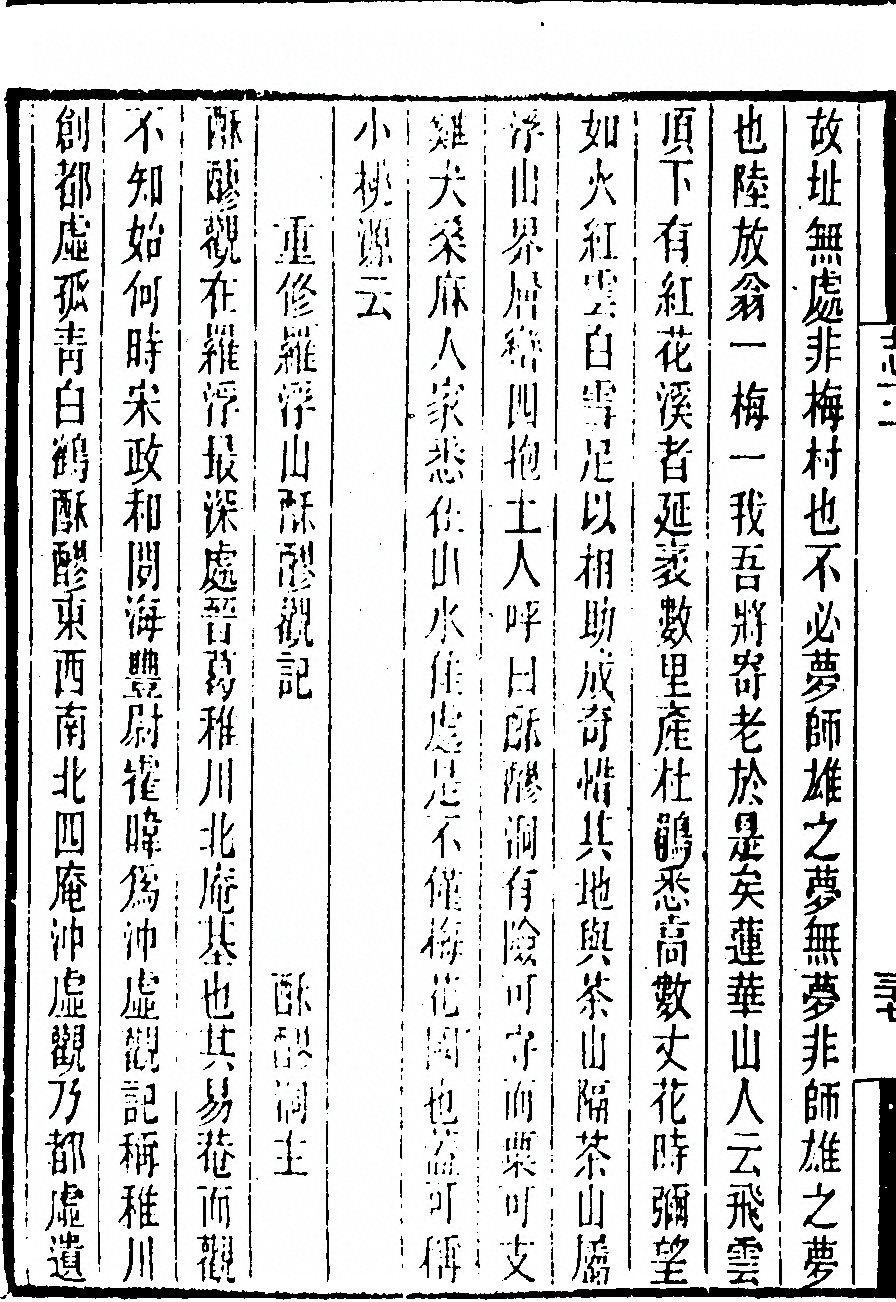 故址無處非梅村也不必夢師雄之夢無夢非師雄之夢
也陸放翁一梅一我吾將寄老於是矣蓮華山人云飛雲
頂下有紅花溪者延袤數里產杜鵑悉高數丈花時彌望
如火紅雲白雪足以相助成奇惜其地與茶山隔茶山屬
浮山界層巒四抱土人呼曰酥醪洞有險可守而粟可支
雞犬桑麻人家悉在山水佳處是不僅梅花國也蓋可稱
小桃源云
重修羅浮山酥醪觀記　酥醪洞主
酥醪觀在羅浮最深處晉葛稚川北庵基也其易菴而觀
不知始何時宋政和間海豐尉崔暐爲沖虛觀記稱稚川
創都虛孤青白鶴酥醪東西南北四庵沖虛觀乃都虛遺